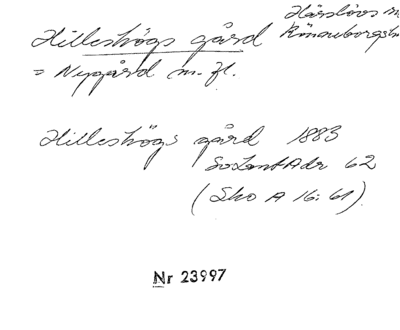 Härslövs
Hilleshögs gård Rönnebergs
= Nygård m. fl.
Hilleshögs gård 1883
SoLantAdr 62
(Sko A 16:61)
Nr 23997